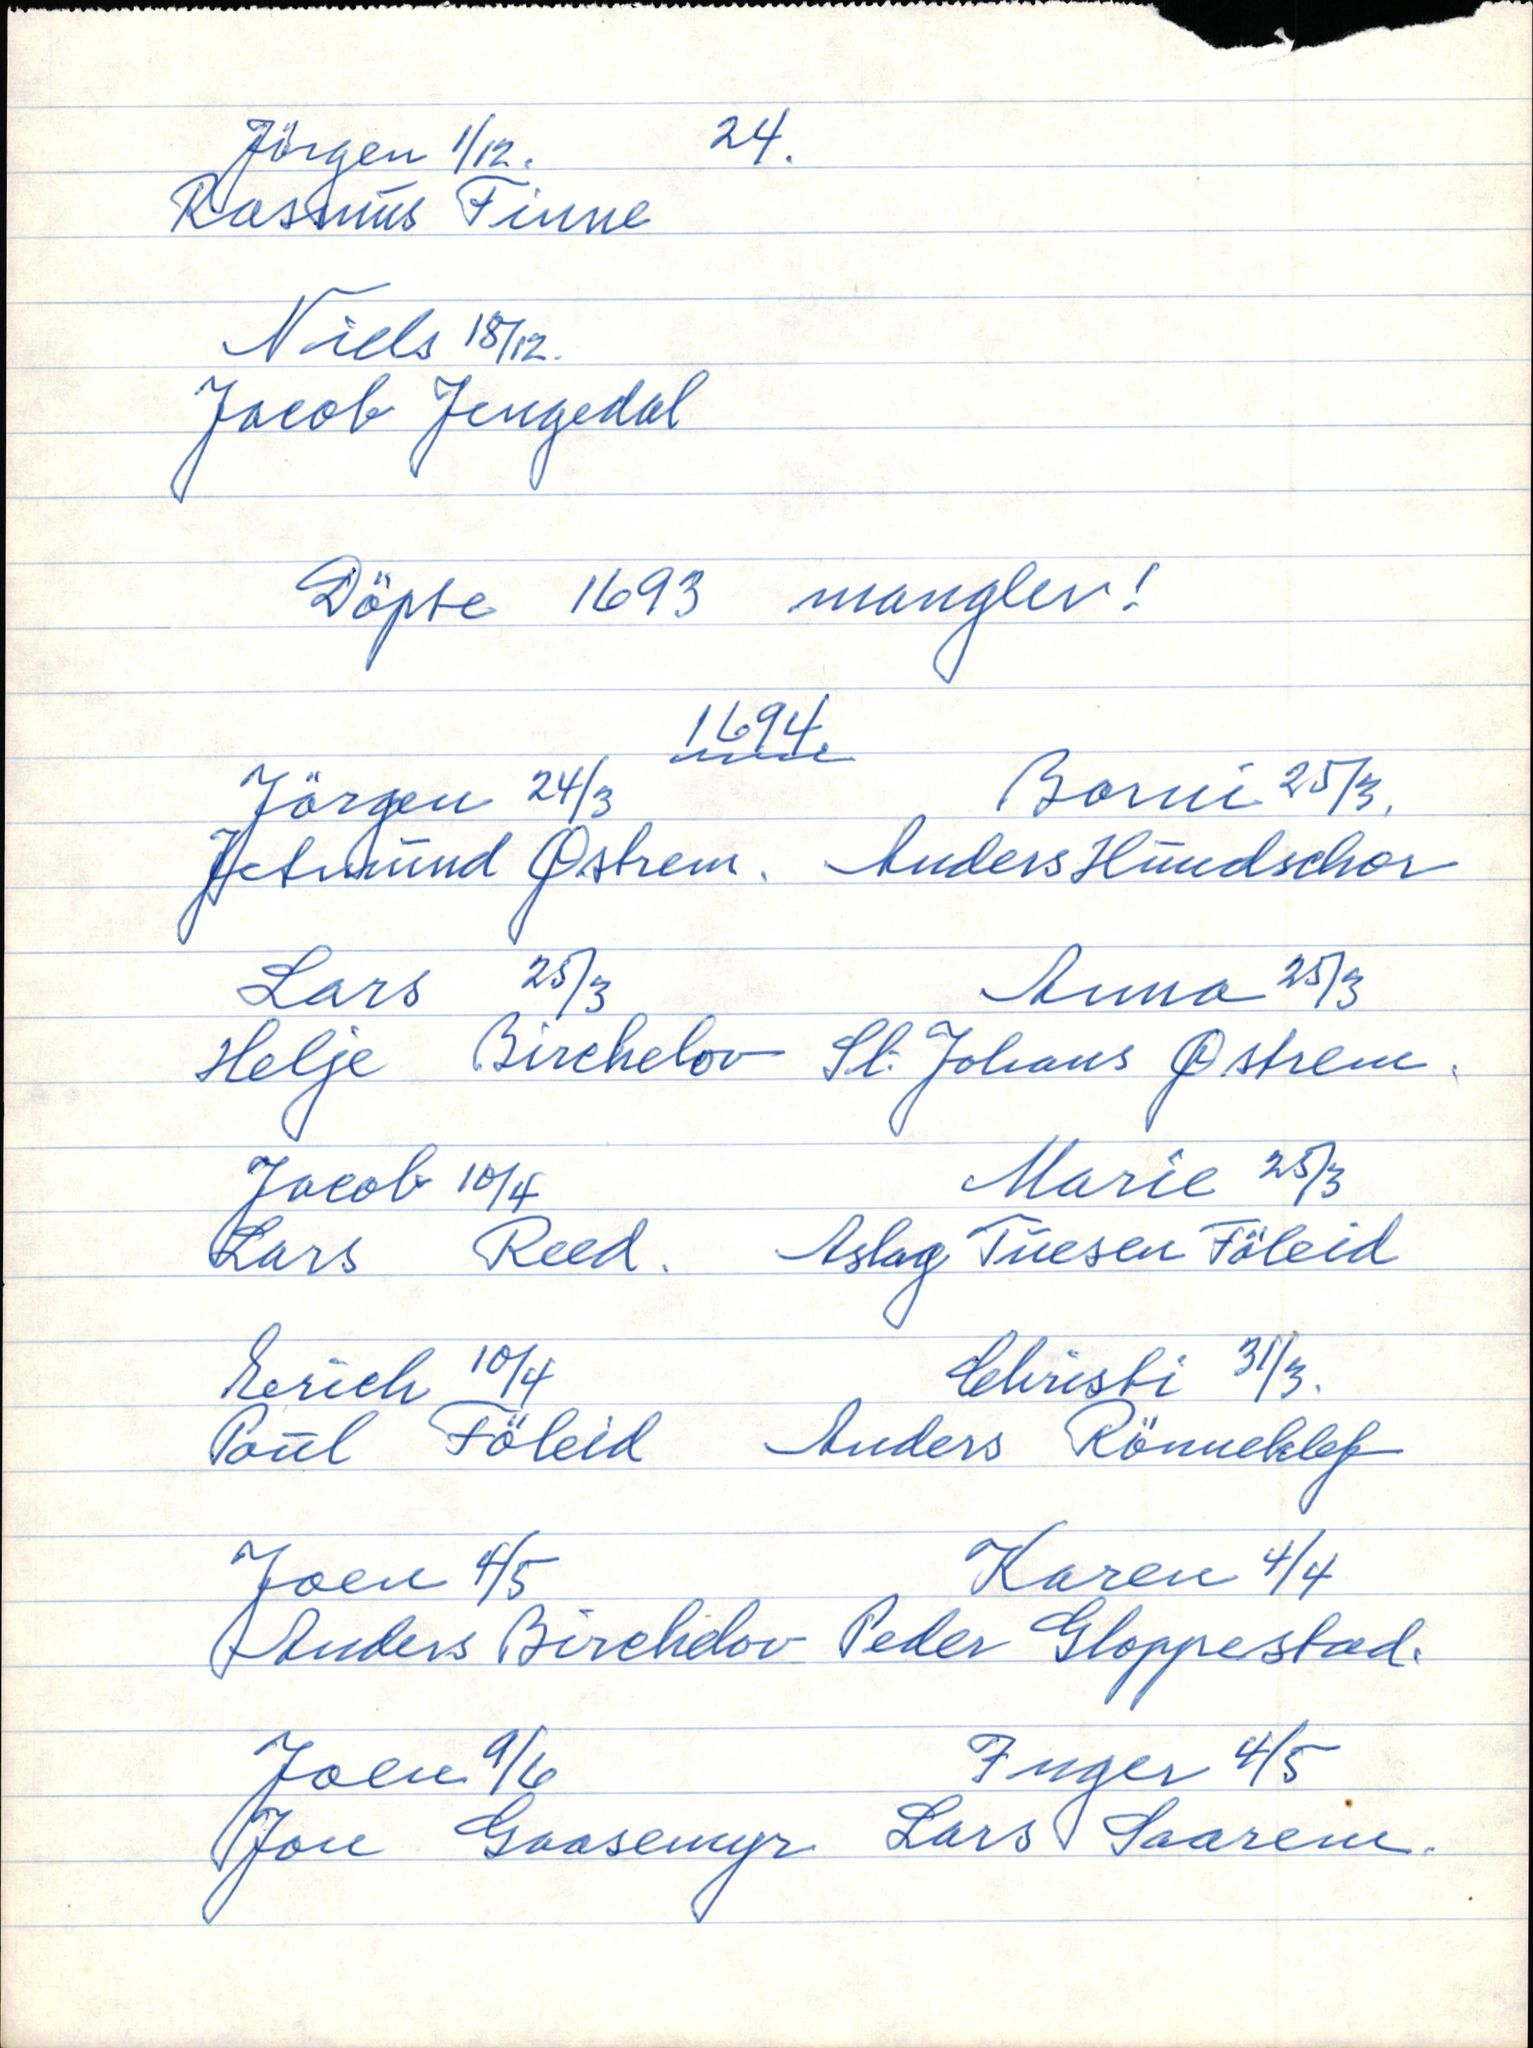 Jörgen 1/12. 24.
Rasmus Finne
Niels 18/12.
Jacob Jengedal
Döpte 1693 mangler!
1694.
Jörgen 24/3 Borni 25/3.
Jetmund Østrem. Anders Hundschor
Lars 25/3 Anna 25/3
Helje Birchelov St. Johans Østrem.
Jacob 10/4 Marie 25/3
Lars Reed. Aslag Tuesen Föleid
Erich 10/4 Christi 31/3.
Poul Föleid Anders Rönneklef
Joen 4/5 Karen 4/4
Anders Birchelov Peder Gloppestad.
Joen 9/6 Inger 4/5
Jon Gaasemyr Lars Saarem.